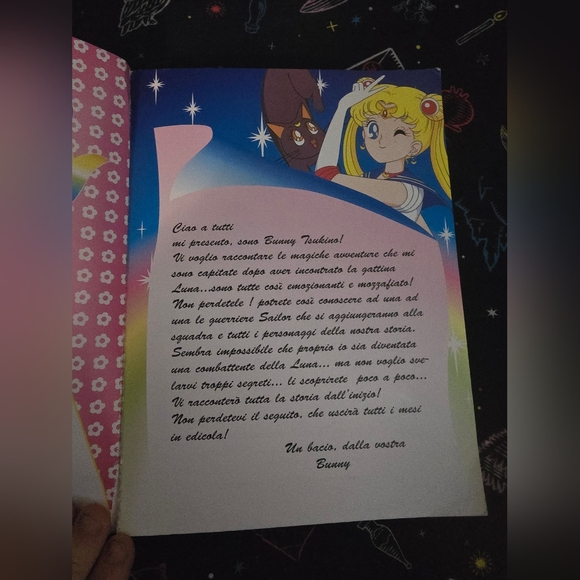 Ciao a tutti
mi presento, sono Bunny Tsukino!
Vi voglio raccontare le magiche avventure che mi
sono capitate dopo aver incontrato la gattina
Luna...sono tutte così emozionanti e mozzafiato!
Non perdetele ! potrete così conoscere ad una ad
una le guerriere Sailor che si aggiungeranno alla
squadra e tutti i personaggi della nostra storia.
Sembra impossibile che proprio io sia diventata
una combattente della Luna... ma non voglio sve-
larvi troppi segreti... li scoprirete poco a poco...
Vi racconterò tutta la storia dall'inizio!
Non perdetevi il seguito, che uscirà tutti i mesi
in edicola!
Un bacio, dalla vostra
Bunny